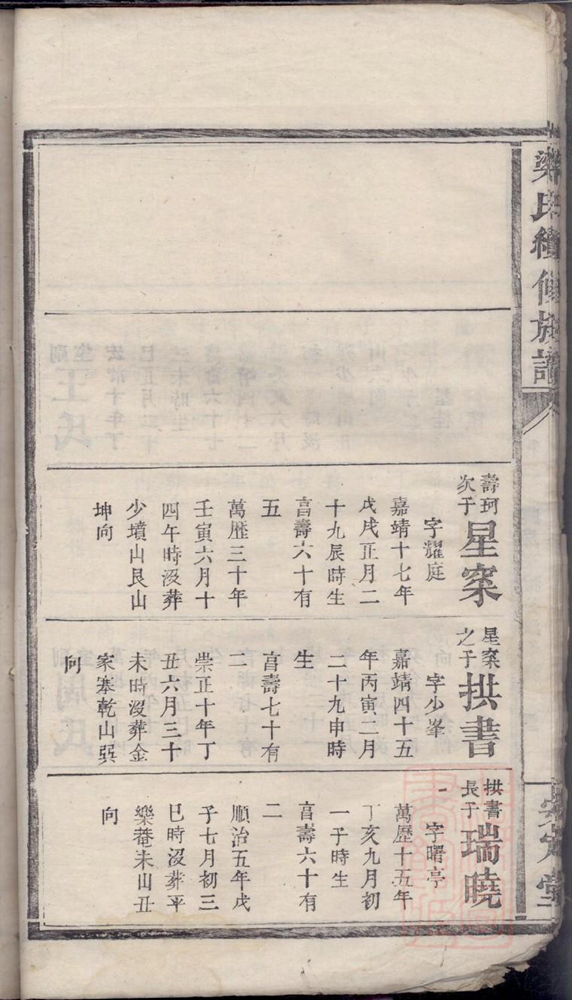 梁氏續修族譜
安定堂
壽珂
次子
星寀
字耀庭
嘉靖十七年
戊戌正月二
十九辰時生
享壽六十有
五
萬歷三十年
壬寅六月十
四午時沒葬
少墳山艮山
坤向
星寀
之子
拱書
字少峯
嘉靖四十五
年丙寅二月
二十九申時
生
享壽七十有
二
崇正十年丁
丑六月三十
未時沒葬金
家塞乾山巽
向
拱書
長子
瑞曉
字曙亭
萬歷十五年
丁亥九月初
一子時生
享壽六十有
二
順治五年戊
子七月初三
巳時沒葬平
樂菴未山丑
向